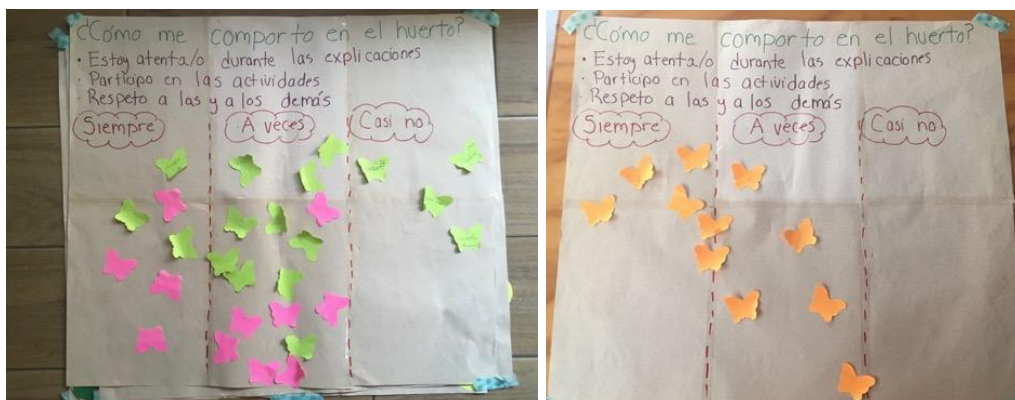 ¿Cómo me comporto en el huerto?
• Estoy atenta/o durante las explicaciones
· Participo en las actividades
· Respeto a las y a los demás
Siempre
A veces
Casi no
¿Cómo me comporto en el huerto?
• Estoy atenta/o durante las explicaciones
· Participo en las actividades
· Respeto a las y a los demás
Siempre
A veces
Casi no